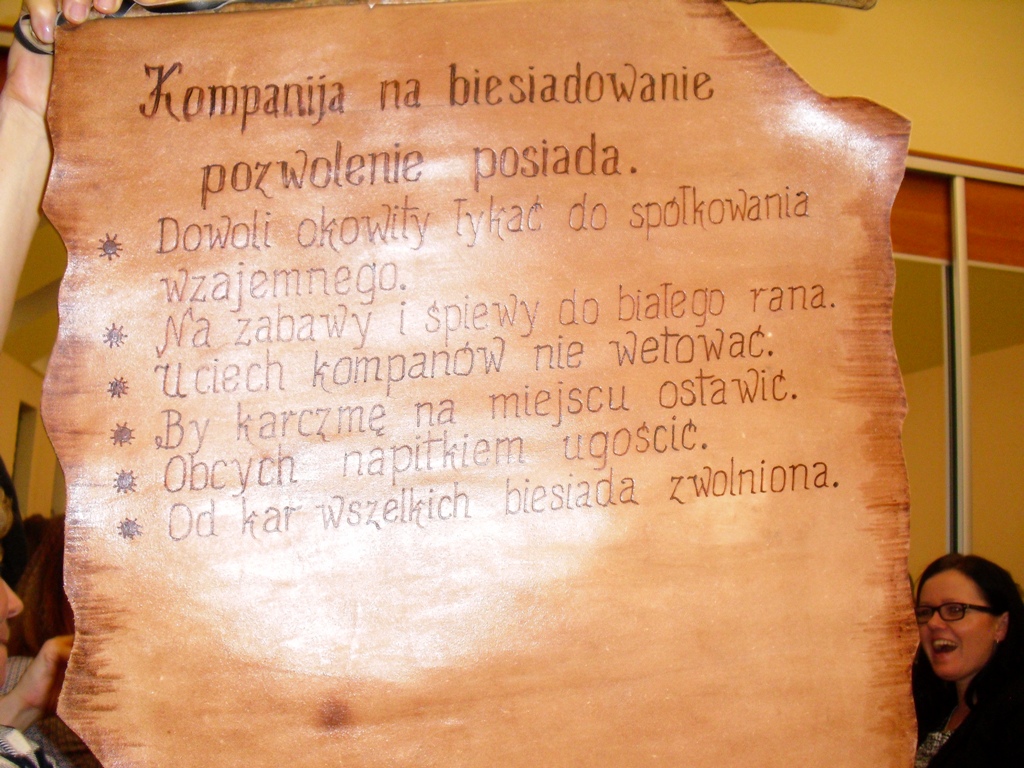 Kompanija na biesiadowanie
pozwolenie posiada.
Dowoli okowity łykać do spółkowania
wzajemnego.
Na zabawy i śpiewy do białego rana.
Uciech kompanów nie wetować.
By karczmę na miejscu ostawić.
Obcych napitkiem ugościć.
Od kar wszelkich biesiada zwolniona.